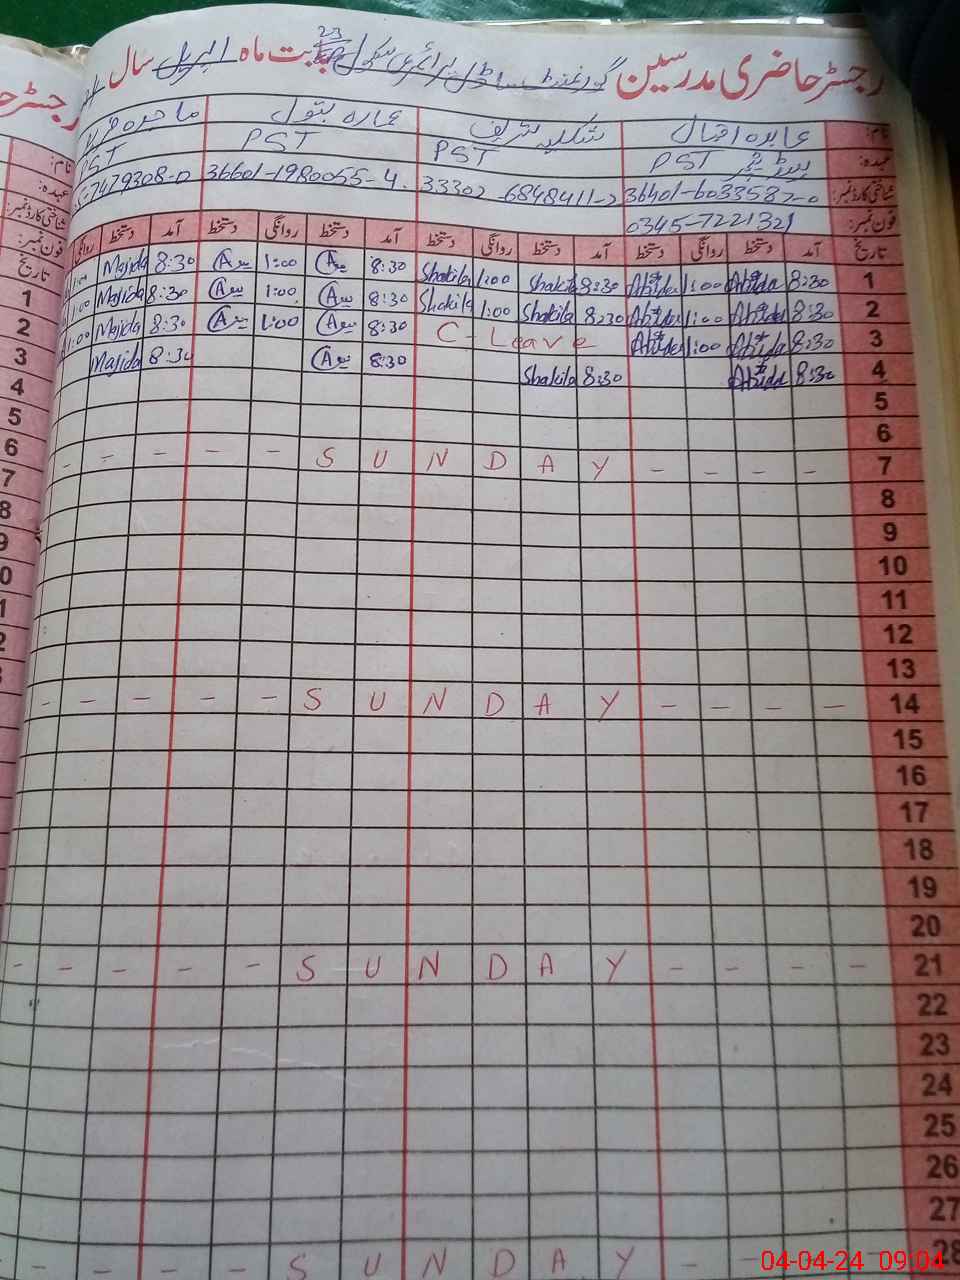 رجسٹر حاضری مدرسین گورنمنٹ ماڈل پرائمری سکول بابت ماہ اپریل سال
23
نام: عابدہ اقبال شکیلہ شریف عمارہ بتول ماجدہ
عہدہ: ہیڈ ٹیچر PST PST PST PST
شناختی کارڈ نمبر: 36401-6033582-0 33302-6848411-2 36601-1980055-4 7479308-0
فون نمبر: 0345-7221321
تاریخ آمد دستخط روانگی دستخط آمد دستخط روانگی دستخط آمد دستخط روانگی دستخط آمد دستخط روانگی
1 8:30 Abida 1:00 Abida 8:30 Shakila 1:00 Shakila 8:30 1:00 8:30 Majida 1:00
2 8:30 Abida 1:00 Abida 8:30 Shakila 1:00 Shakila 8:30 1:00 8:30 Majida 1:00
3 8:30 Abida 1:00 Abida C-Leave 8:30 1:00 8:30 Majida 1:00
4 8:30 Abida 8:30 Shakila 8:30 8:30 Majida
5
6
7 - - - - S U N D A Y - - - - - -
8
9
10
11
12
13
14 - - - - S U N D A Y - - - - - -
15
16
17
18
19
20
21 - - - - S U N D A Y - - - - -
22
23
24
25
26
27
28 - - S U N D A Y - - - - -
04-04-24 09:04